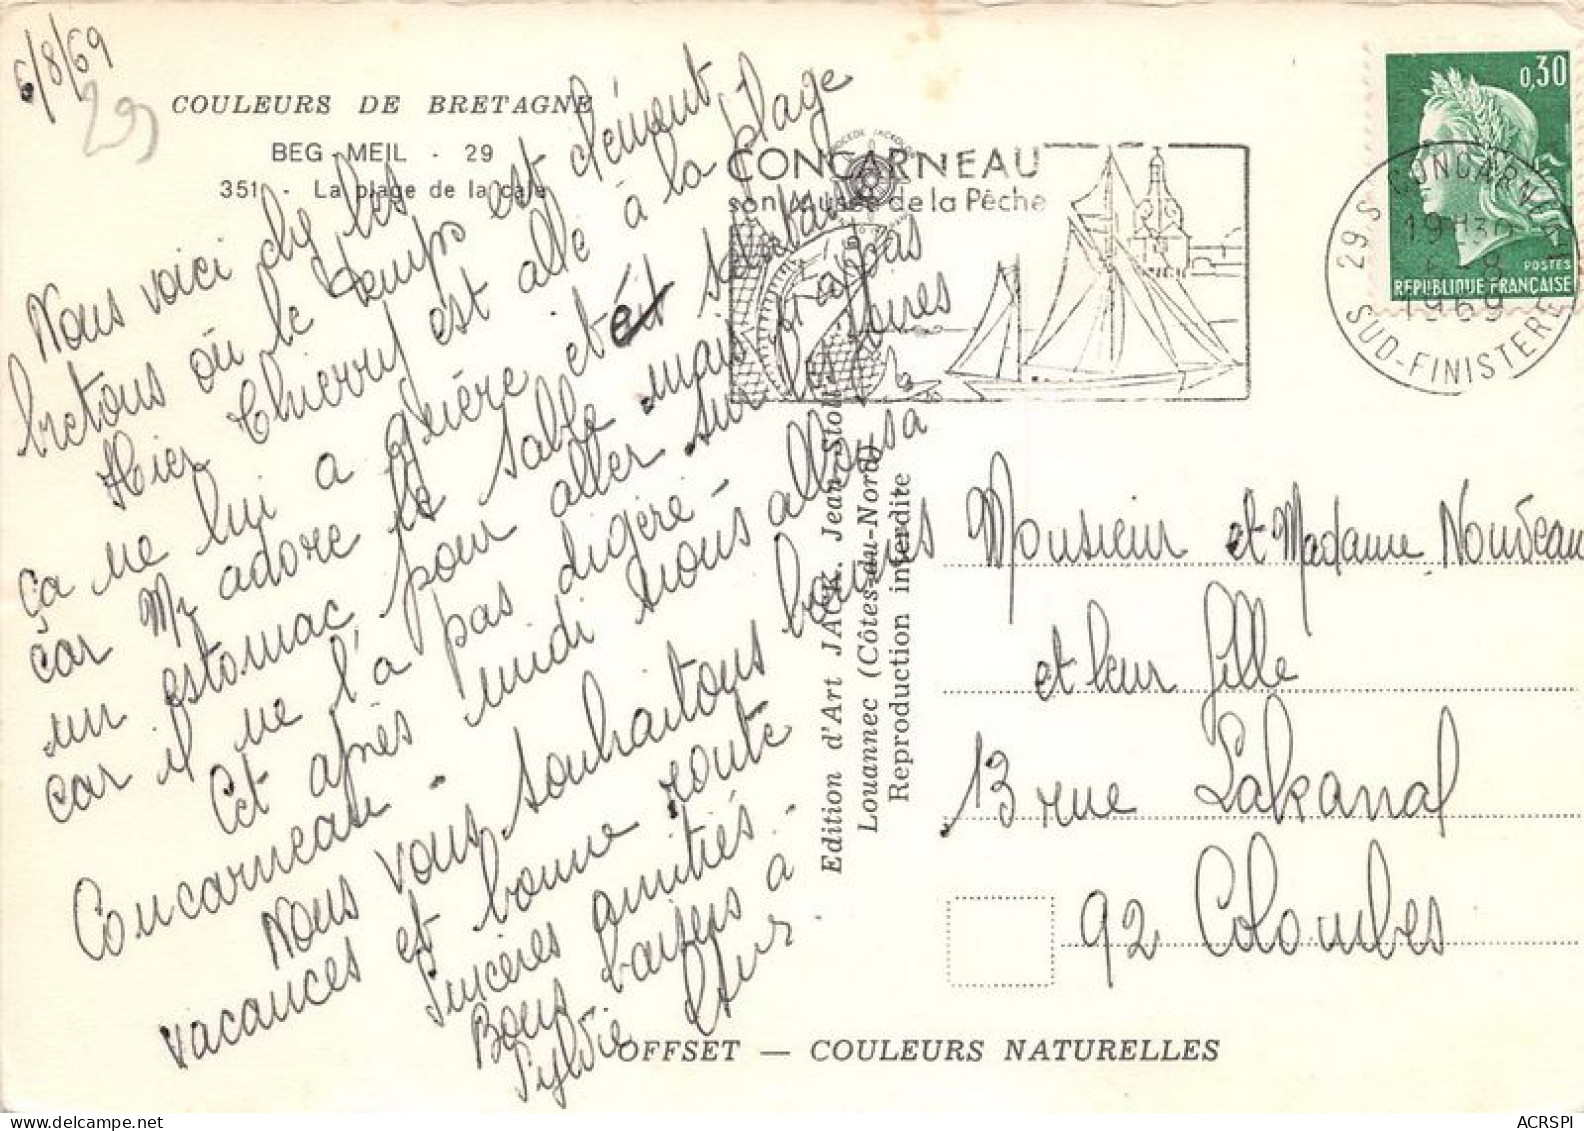 6/8/69
29
COULEURS DE BRETAGNE
BEG MEIL - 29
351 - La plage de la cale
Nous voici chez les
bretons où le temps est clément
Hier Thierry est allé à la plage
ça ne lui a guère
car Mr adore le sable mais n'a pas
un estomac pour aller sur les foires
car il ne l'a pas digéré -
Cet après midi nous allons à
Concarneau -
Nous vous souhaitons bonnes
vacances et bonne route
Sincères amitiés -
Bons baisers à
Sylvie
CONCARNEAU
son Musée de la Pêche
0,30
POSTES
REPUBLIQUE FRANÇAISE
29 S CONCARNEAU
19H30
6-8
1969
SUD-FINISTERE
Edition d'Art JACK. Jean Stoll.
Louannec (Côtes-du-Nord)
Reproduction interdite
Monsieur et Madame Nondeau
et leur fille
13 rue Lakanal
92 Colombes
OFFSET — COULEURS NATURELLES
ACRSPI